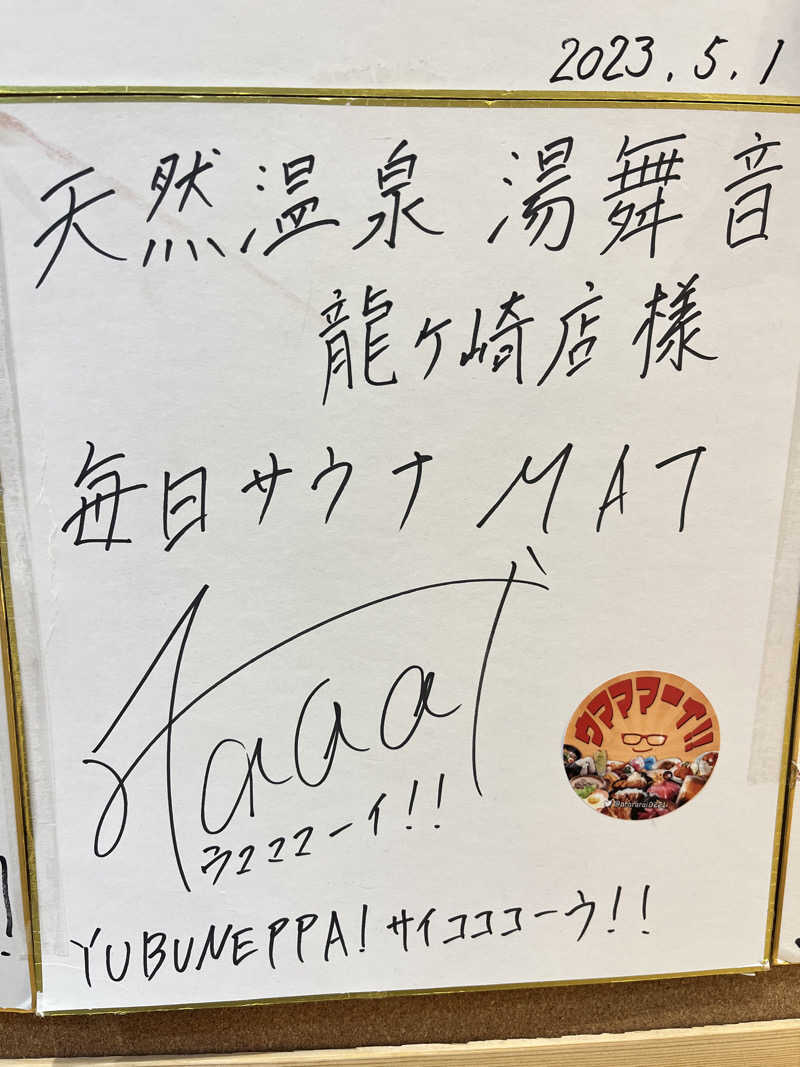 2023.5.1
天然温泉 湯舞音
龍ヶ崎店様
毎日サウナ MAT
ウマママーイ!!
ウマママーイ!!
YUBUNEPPA! サイコココーウ!!